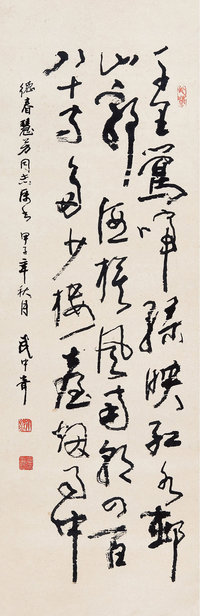 千里鶯啼绿映红水邨
山郭酒旗風南朝四百
八十寺多少楼臺烟雨中
春慧芳同志属 甲子年秋月 武中奇